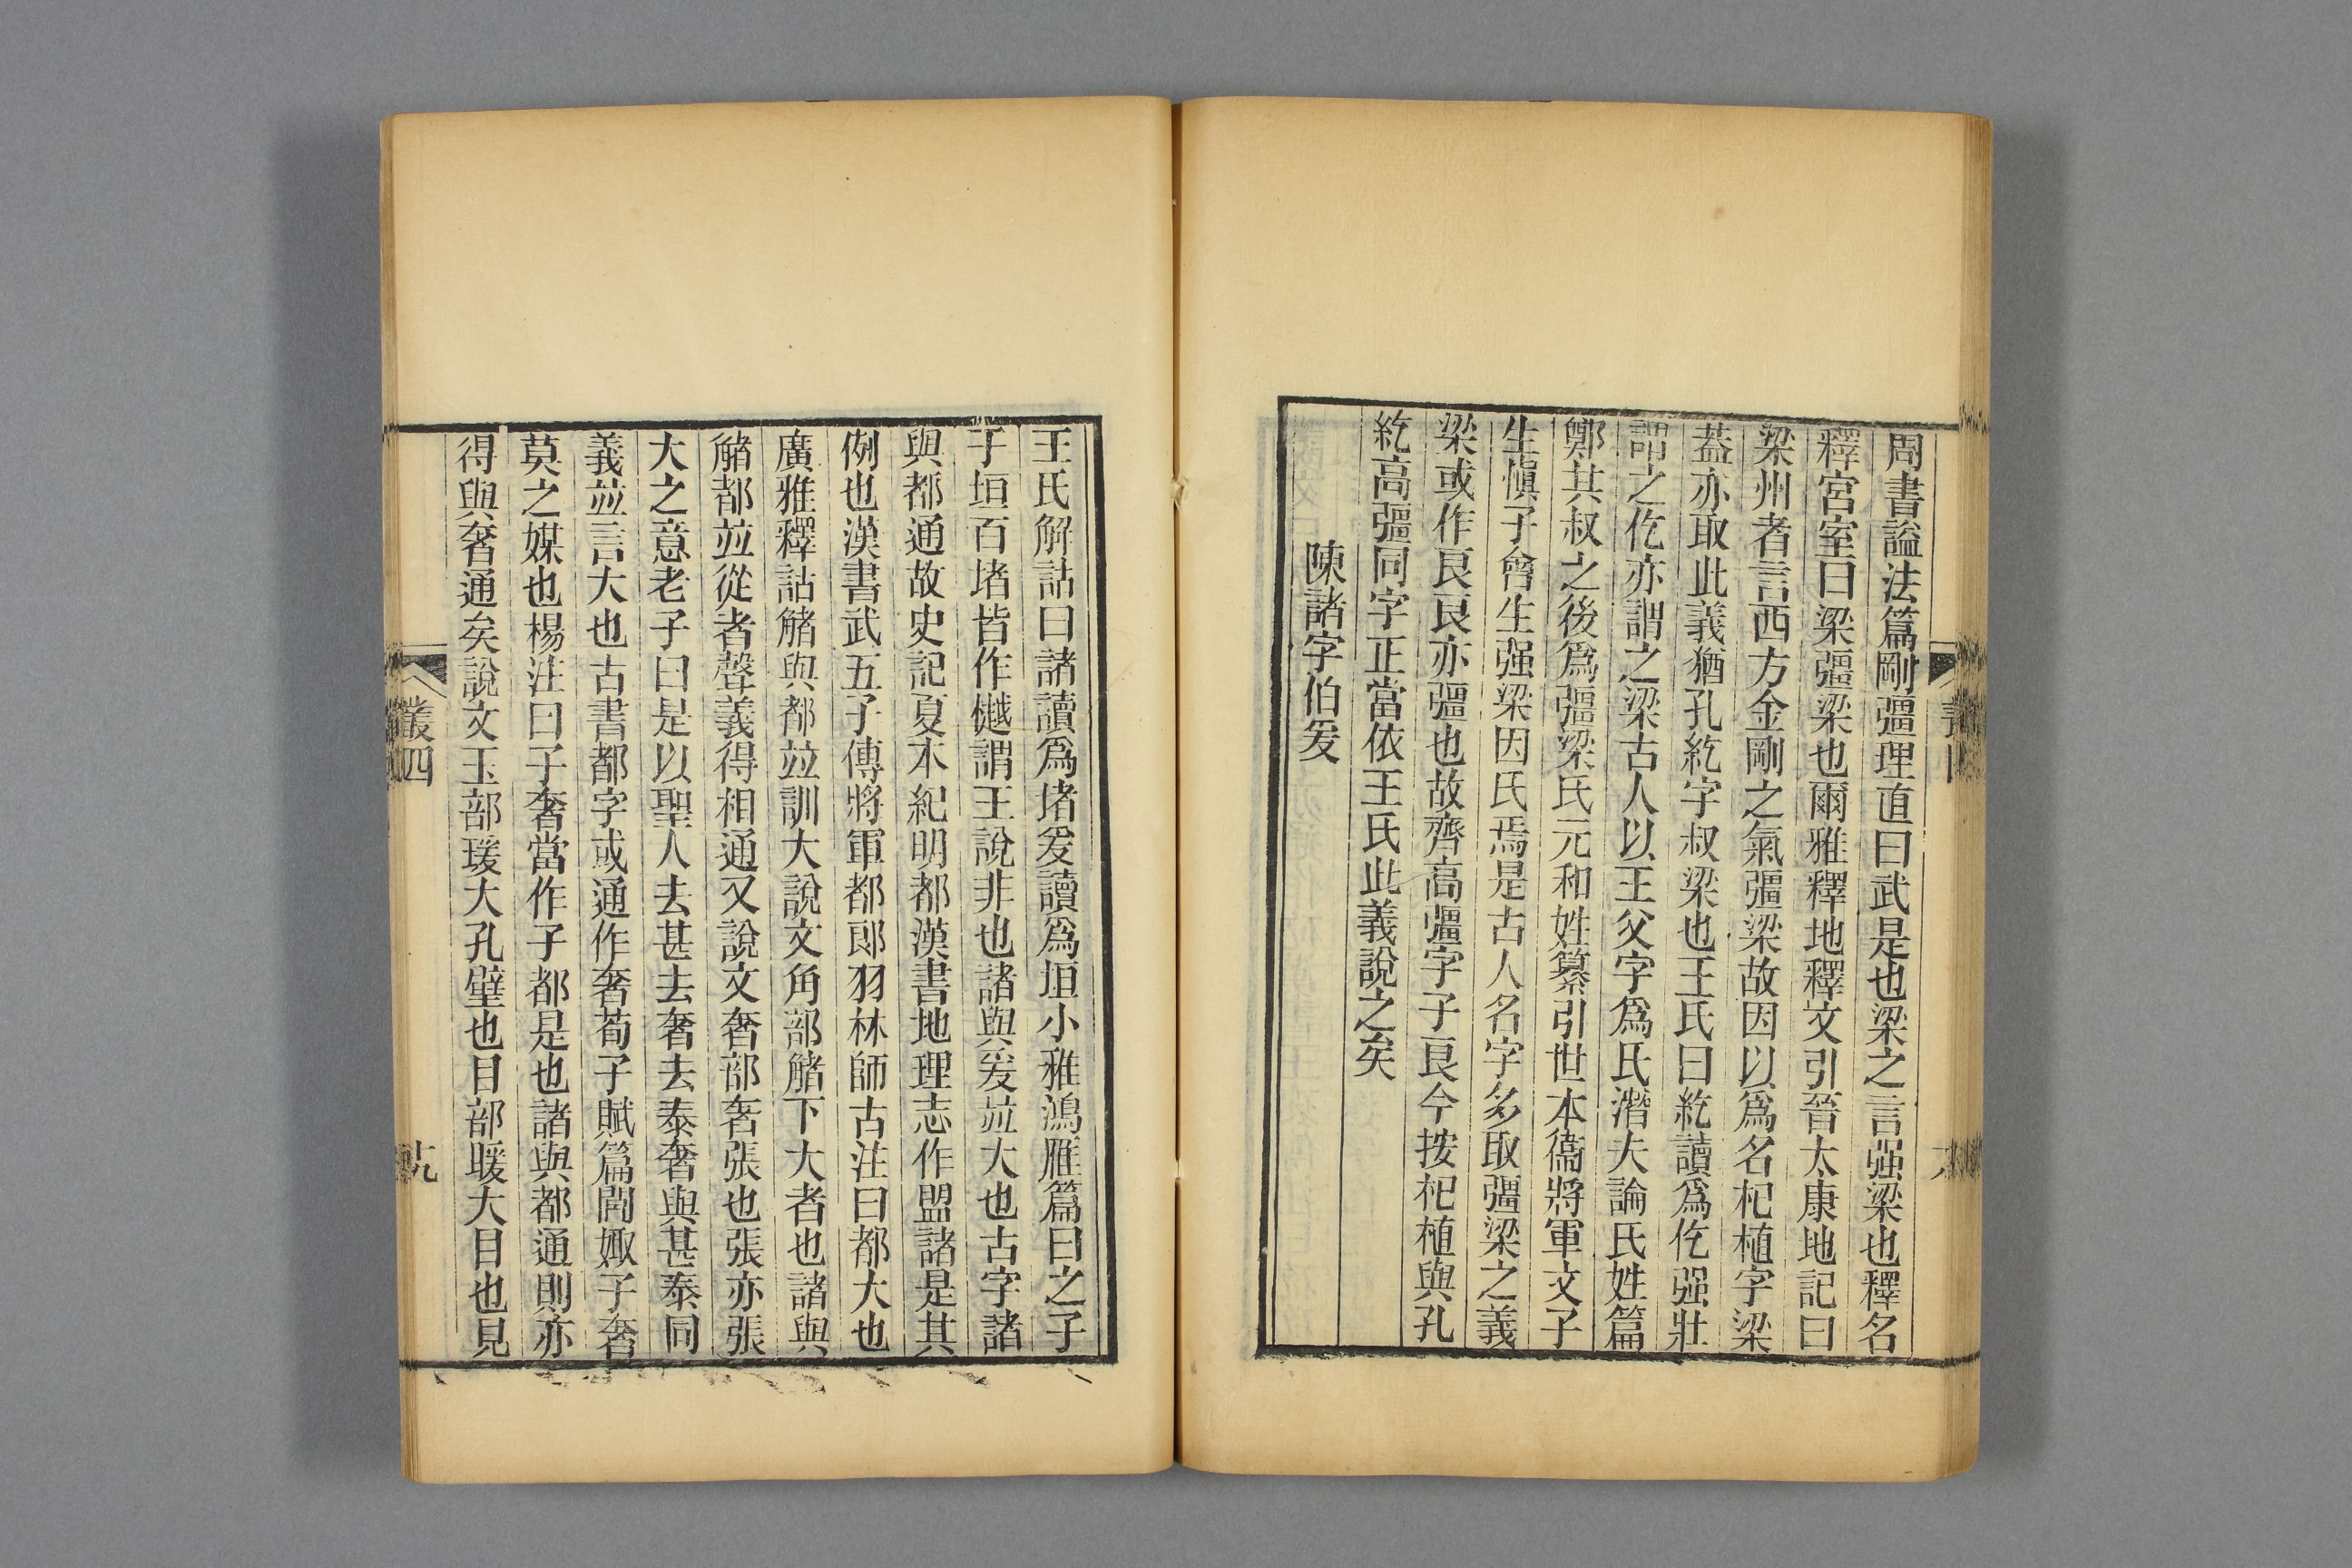 周書謚法篇剛彊理直曰武是也梁之言强梁也釋名
釋宮室曰梁彊梁也爾雅釋地釋文引晉太康地記曰
梁州者言西方金剛之氣彊梁故因以爲名杞植字梁
葢亦取此義猶孔紇字叔梁也王氏曰紇讀爲仡强壯
謂之仡亦謂之梁古人以王父字爲氏潛夫論氏姓篇
鄭共叔之後爲彊梁氏元和姓纂引世本衞將軍文子
生愼子會生强梁因氏焉是古人名字多取彊梁之義
梁或作良良亦彊也故齊高彊字子良今按杞植與孔
紇高彊同字正當依王氏此義說之矣
陳諸字伯爰
王氏解詁曰諸讀爲堵爰讀爲垣小雅鴻雁篇曰之子
于垣百堵皆作樾謂王說非也諸與爰竝大也古字諸
與都通故史記夏本紀明都漢書地理志作盟諸是其
例也漢書武五子傳將軍都郞羽林師古注曰都大也
廣雅釋詁觰與都竝訓大說文角部觰下大者也諸與
觰都竝從者聲義得相通又說文奢部奢張也張亦張
大之意老子曰是以聖人去甚去奢去泰奢與甚泰同
義竝言大也古書都字或通作奢荀子賦篇閭娵子奢
莫之媒也楊注曰子奢當作子都是也諸與都通則亦
得與奢通矣說文玉部瑗大孔壁也目部暖大目也見
叢四
十九